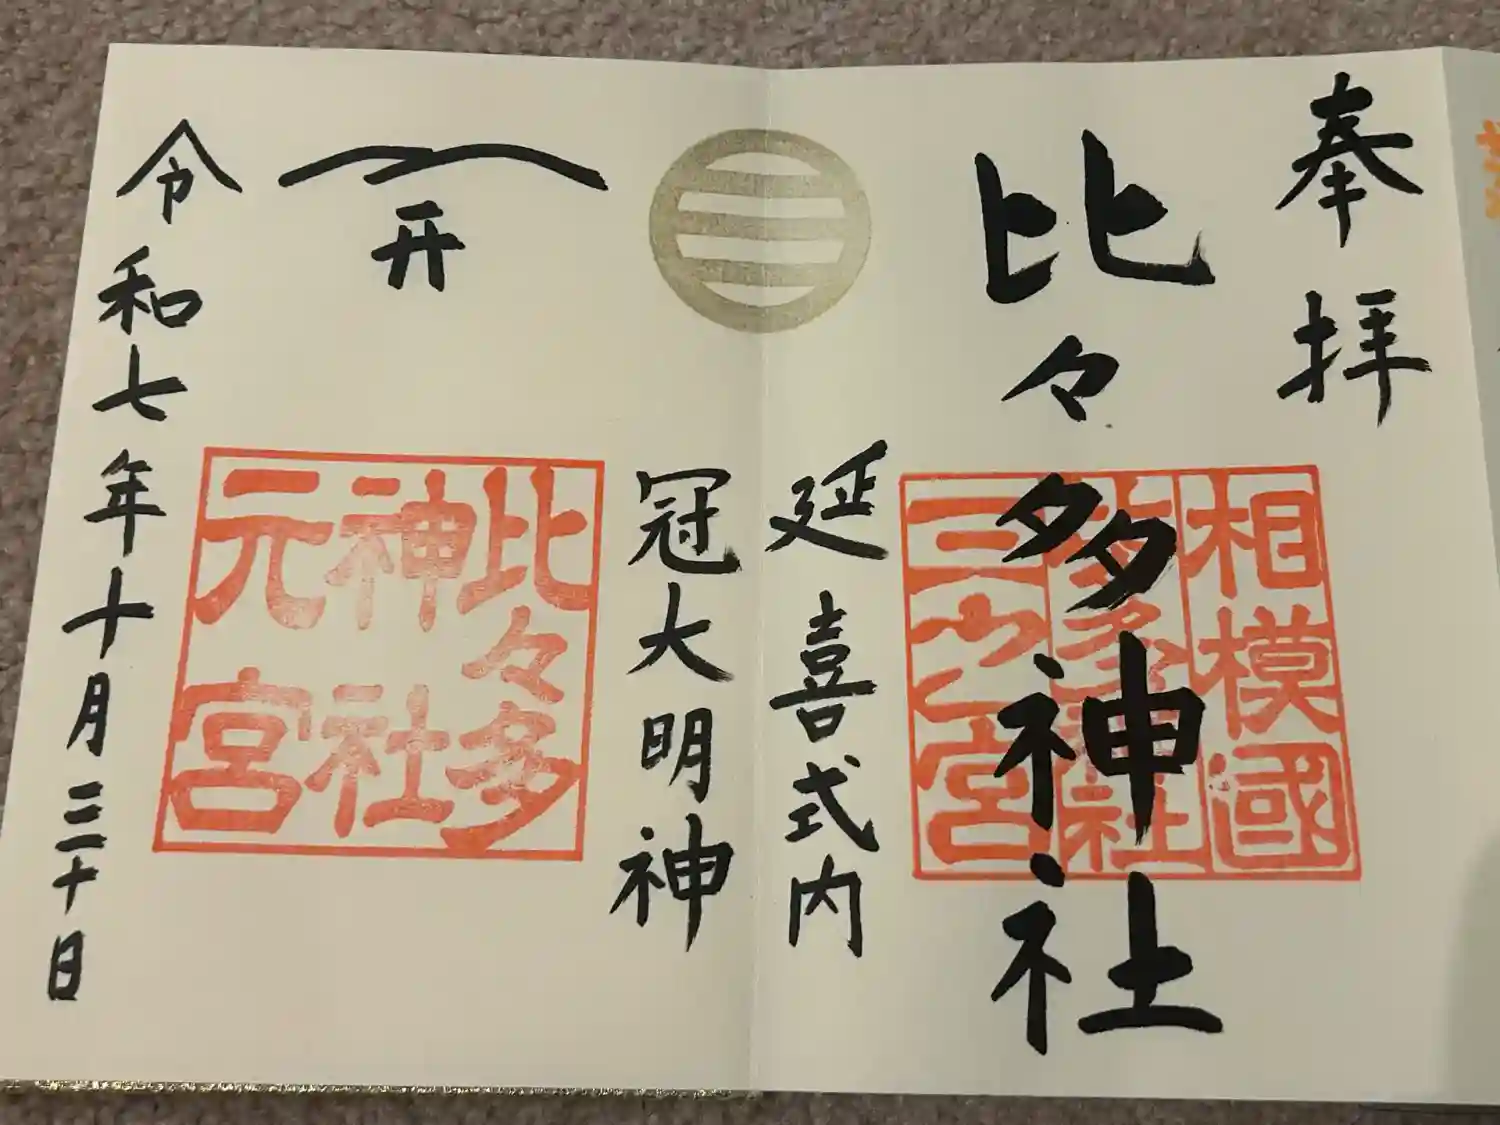 奉拝
比々多神社
相模國
比々多神社
三之宮
延喜式内
冠大明神
开
比々多
神社
元宮
令和七年十月三十日